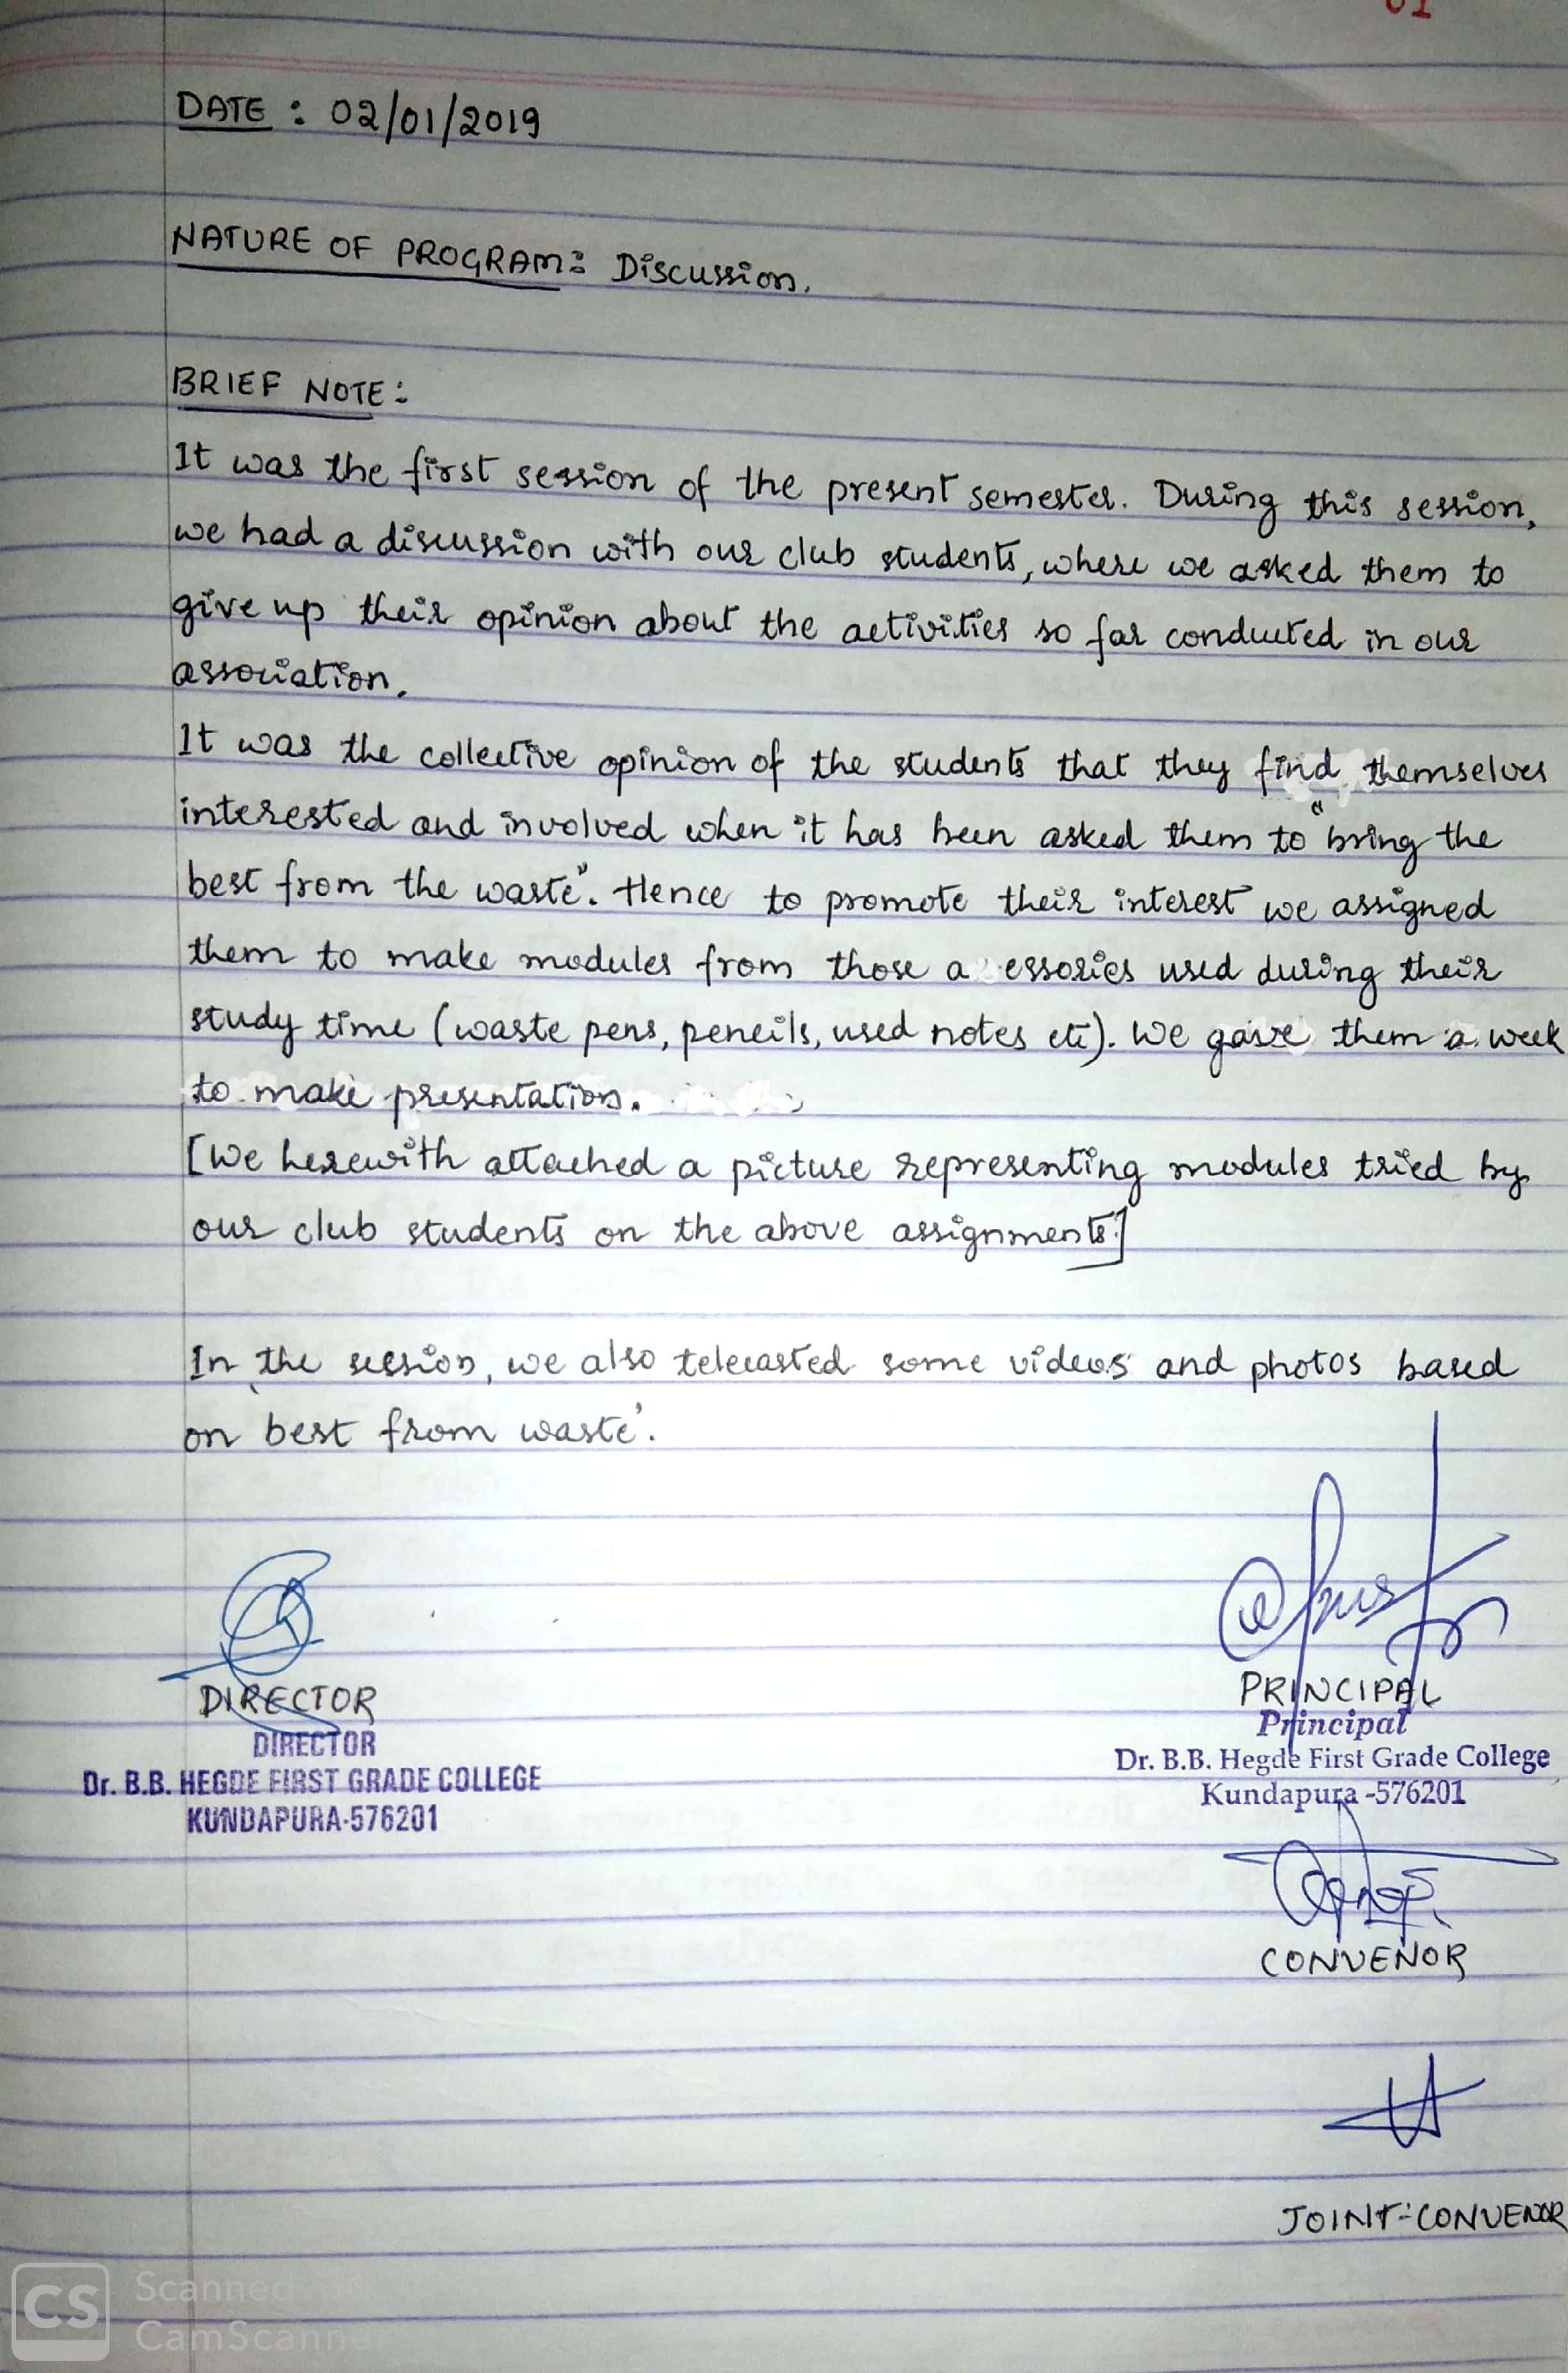 01
DATE : 02/01/2019
NATURE OF PROGRAM: Discussion.
BRIEF NOTE:
It was the first session of the present semester. During this session,
we had a discussion with our club students, where we asked them to
give up their opinion about the activities so far conducted in our
association.
It was the collective opinion of the students that they find themselves
interested and involved when it has been asked them to "bring the
best from the waste". Hence to promote their interest we assigned
them to make modules from those a essories used during their
study time (waste pens, pencils, used notes etc). We gave them a week
to make presentation.
[We herewith attached a picture representing modules tried by
our club students on the above assignments.]
In the session, we also telecasted some videos and photos based
on best from waste'.
DIRECTOR
DIRECTOR
Dr. B.B. HEGDE FIRST GRADE COLLEGE
KUNDAPURA-576201
PRINCIPAL
Principal
Dr. B.B. Hegde First Grade College
Kundapura -576201
CONVENOR
JOINT-CONVENOR
CS Scanned
CamScanne